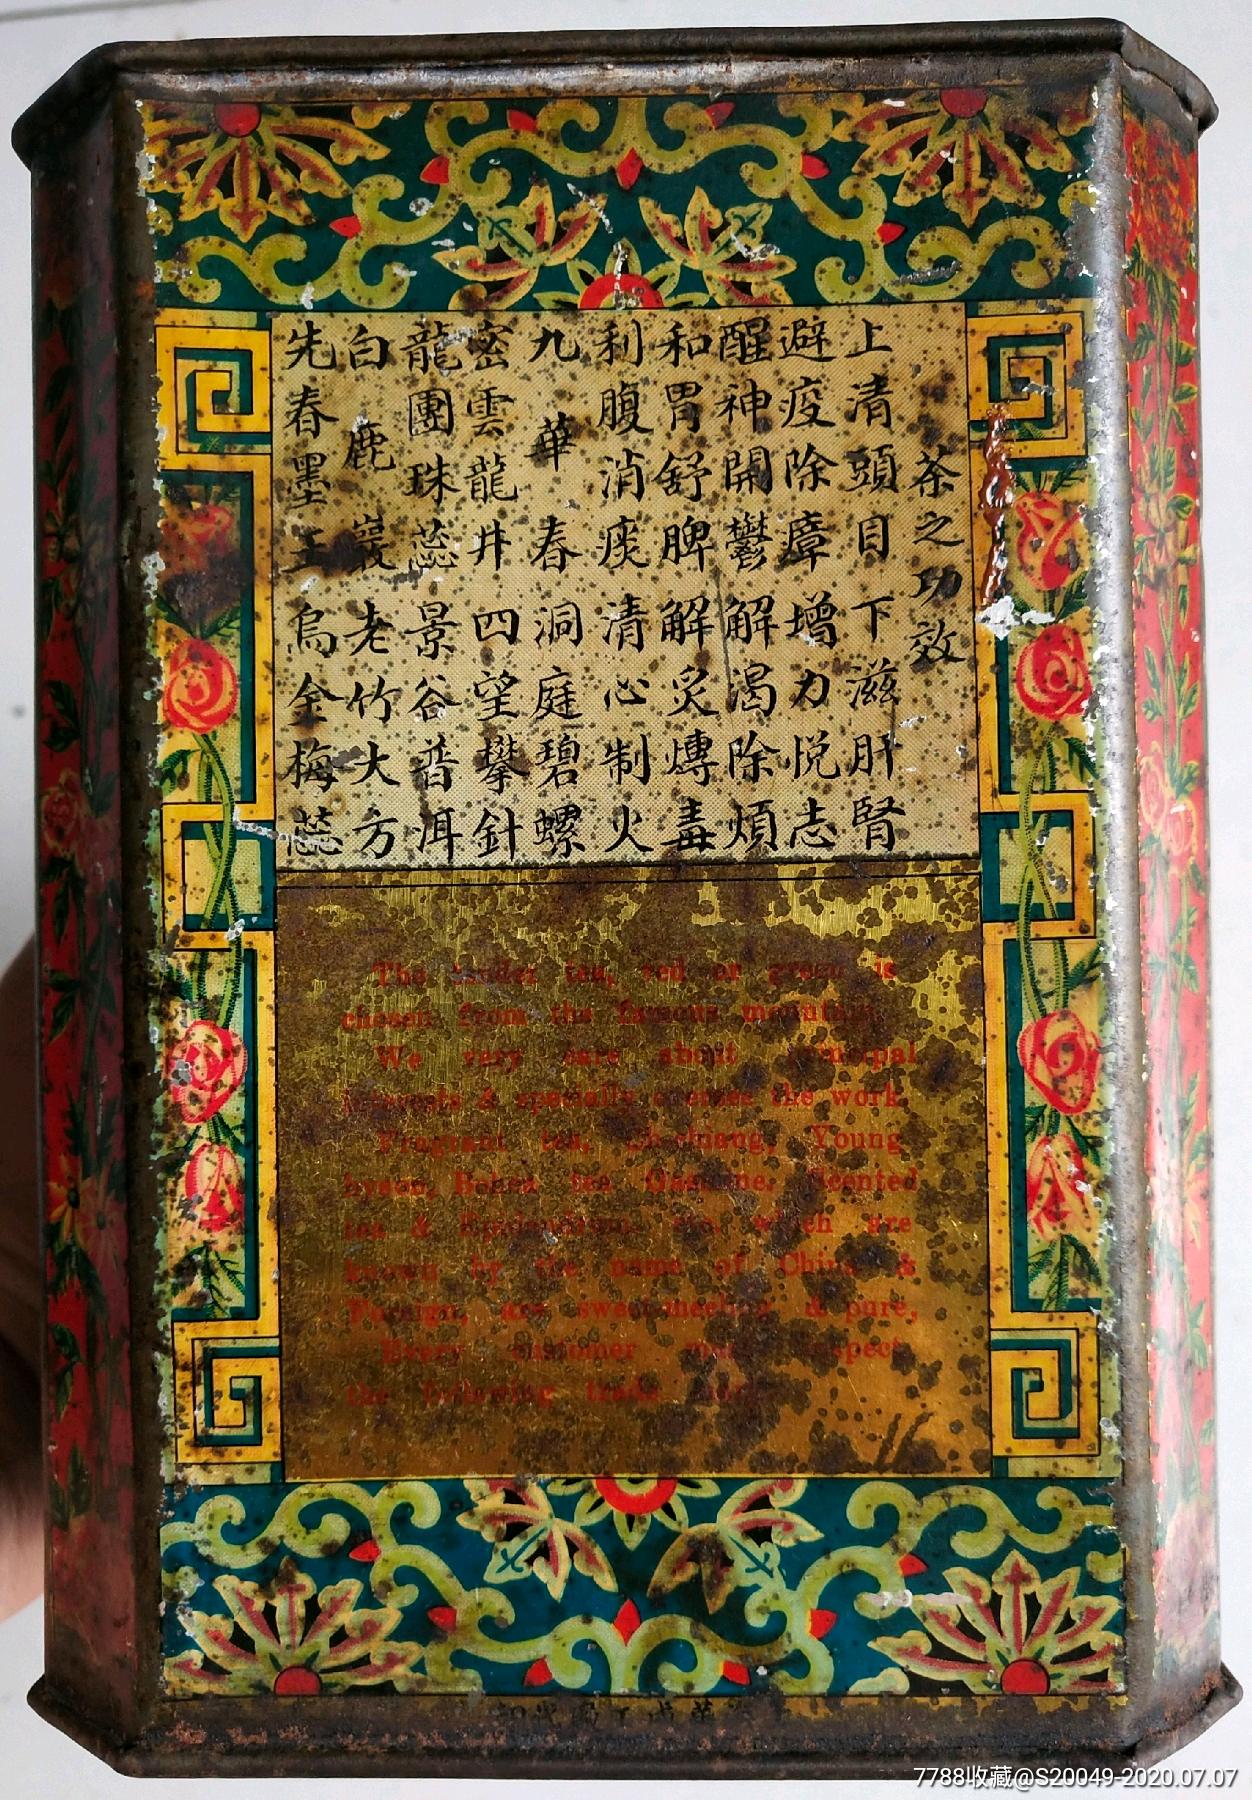 茶之功效
上清頭目下滋肝腎
避疫除瘴增力悦志
醒神開鬱解渴除煩
和胃舒脾解炙煿毒
利腹消痰清心制火
九華春洞庭碧螺
密雲龍井四望攀針
龍團珠蕊景谷普洱
白鹿巖老竹大方
先春墨王烏金梅蕊
The tea, red or green is
chesen from the famous mountain.
We very care about principal
& specially the work
Fragrant tea, Young
hyson, Bohea tea Scented
tea & which are
known by the name of China &
Foreign, are sweet & pure,
Every customer
the following trade
7788收藏@S20049-2020.07.07